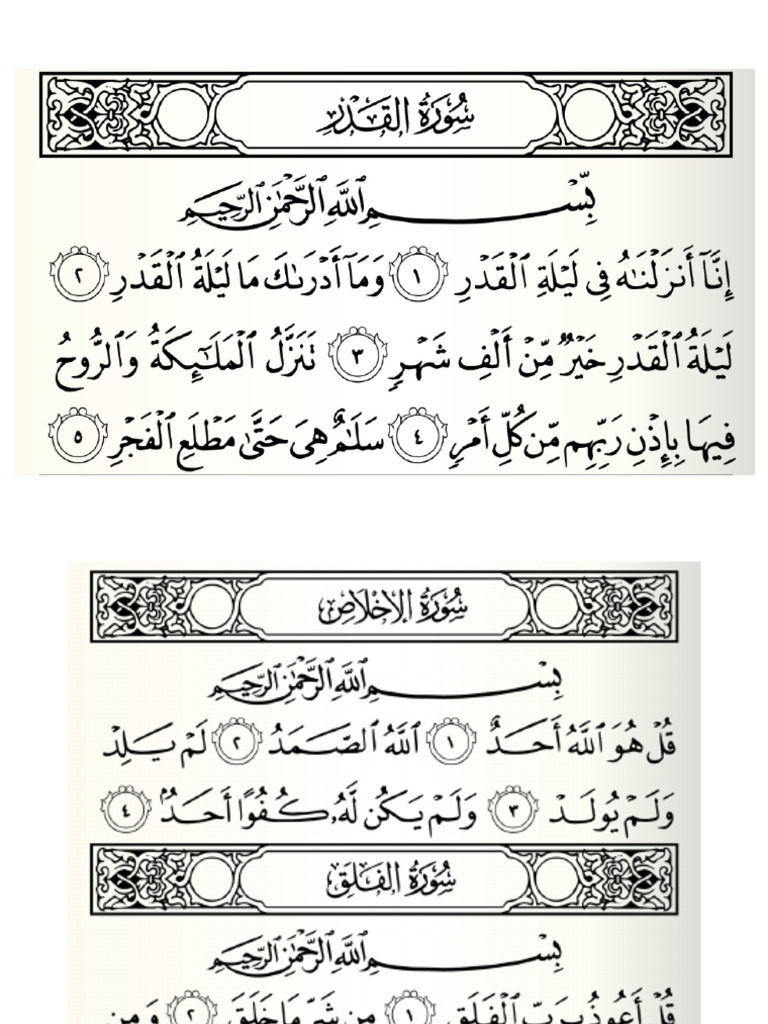 سُورَةُ القَدْرِ
بِّسْمِ ٱللَّهِ ٱلرَّحْمَٰنِ ٱلرَّحِيمِ
إِنَّآ أَنزَلْنَٰهُ فِى لَيْلَةِ ٱلْقَدْرِ ١ وَمَآ أَدْرَىٰكَ مَا لَيْلَةُ ٱلْقَدْرِ ٢
لَيْلَةُ ٱلْقَدْرِ خَيْرٌ مِّنْ أَلْفِ شَهْرٍ ٣ تَنَزَّلُ ٱلْمَلَٰٓئِكَةُ وَٱلرُّوحُ
فِيهَا بِإِذْنِ رَبِّهِم مِّن كُلِّ أَمْرٍ ٤ سَلَٰمٌ هِىَ حَتَّىٰ مَطْلَعِ ٱلْفَجْرِ ٥
سُورَةُ الإِخْلَاصِ
بِسْمِ ٱللَّهِ ٱلرَّحْمَٰنِ ٱلرَّحِيمِ
قُلْ هُوَ ٱللَّهُ أَحَدٌ ١ ٱللَّهُ ٱلصَّمَدُ ٢ لَمْ يَلِدْ
وَلَمْ يُولَدْ ٣ وَلَمْ يَكُن لَّهُۥ كُفُوًا أَحَدٌۢ ٤
سُورَةُ الفَلَقِ
بِسْمِ ٱللَّهِ ٱلرَّحْمَٰنِ ٱلرَّحِيمِ
قُلْ أَعُوذُ بِرَبِّ ٱلْفَلَقِ ١ مِن شَرِّ مَا خَلَقَ ٢ وَمِن